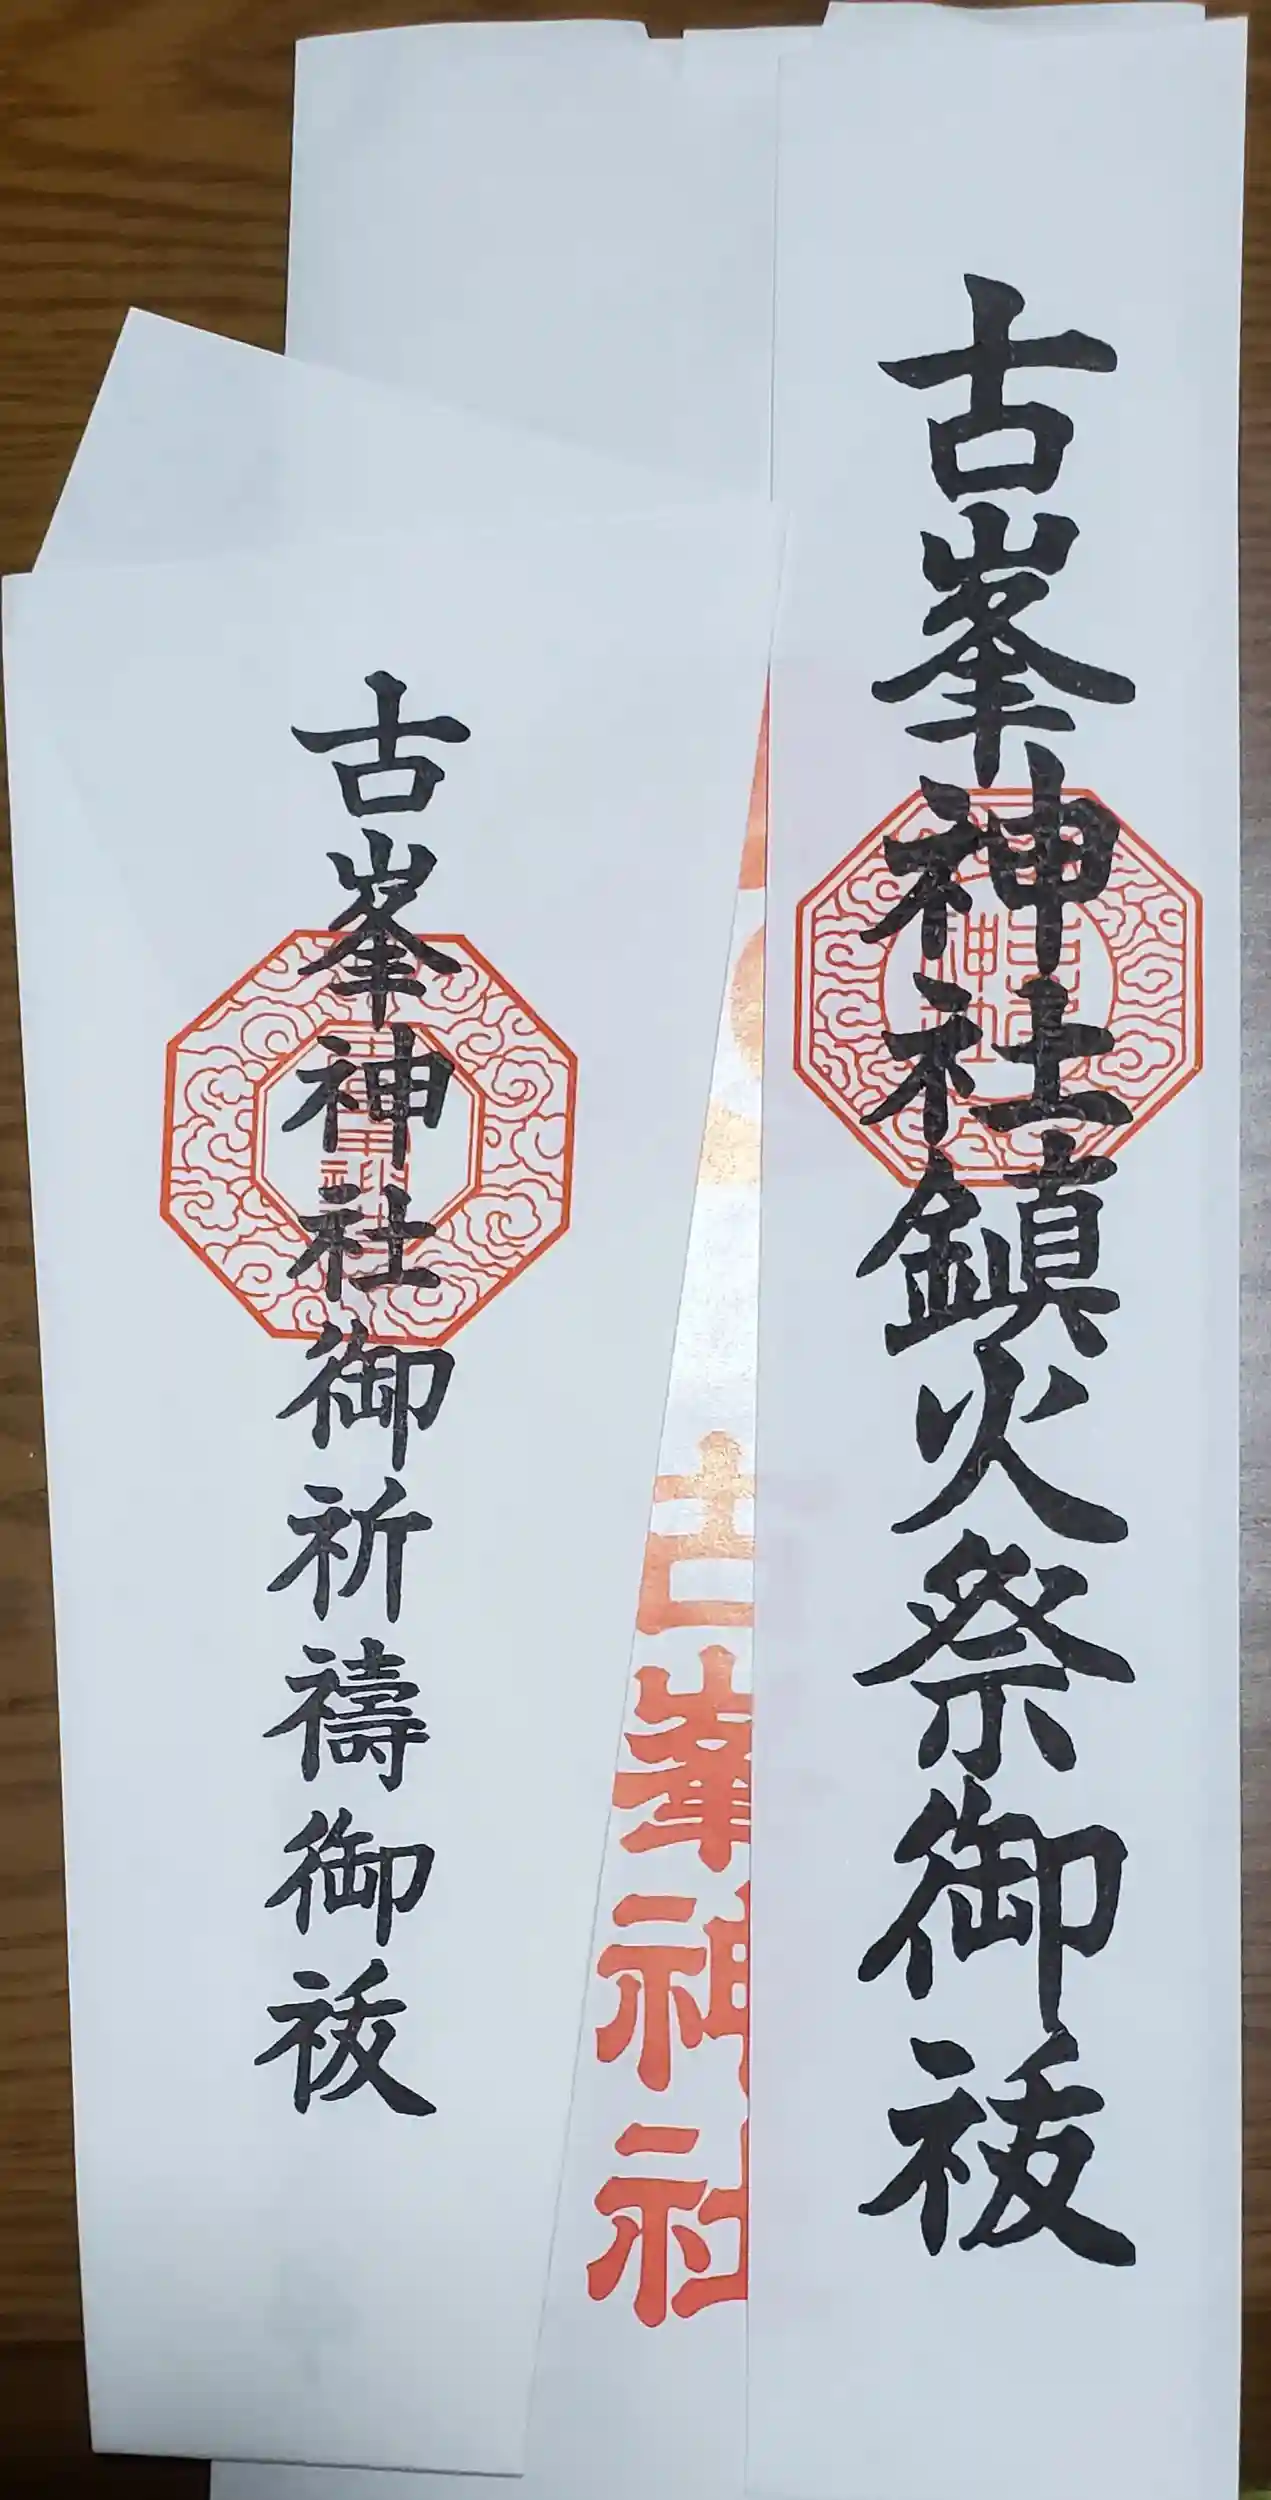 古峯神社鎮火祭御祓
古峯神社
古峯神社御祈禱御祓